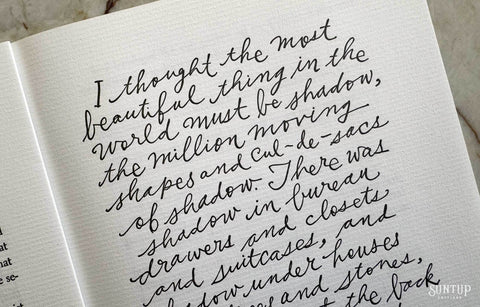 I thought the most
beautiful thing in the
world must be shadow,
the million moving
shapes and cul-de-sacs
of shadow. There was
shadow in bureau
drawers and closets
and suitcases, and
shadow under houses
and stones,
the back
at
that
e se-
SUNTUP
EDITIONS